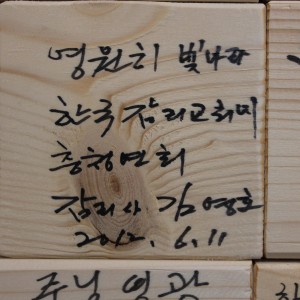 영원히 빛나라
한국감리교회의
충청연회
감리사 김영호
2012. 6. 11
주님 영광